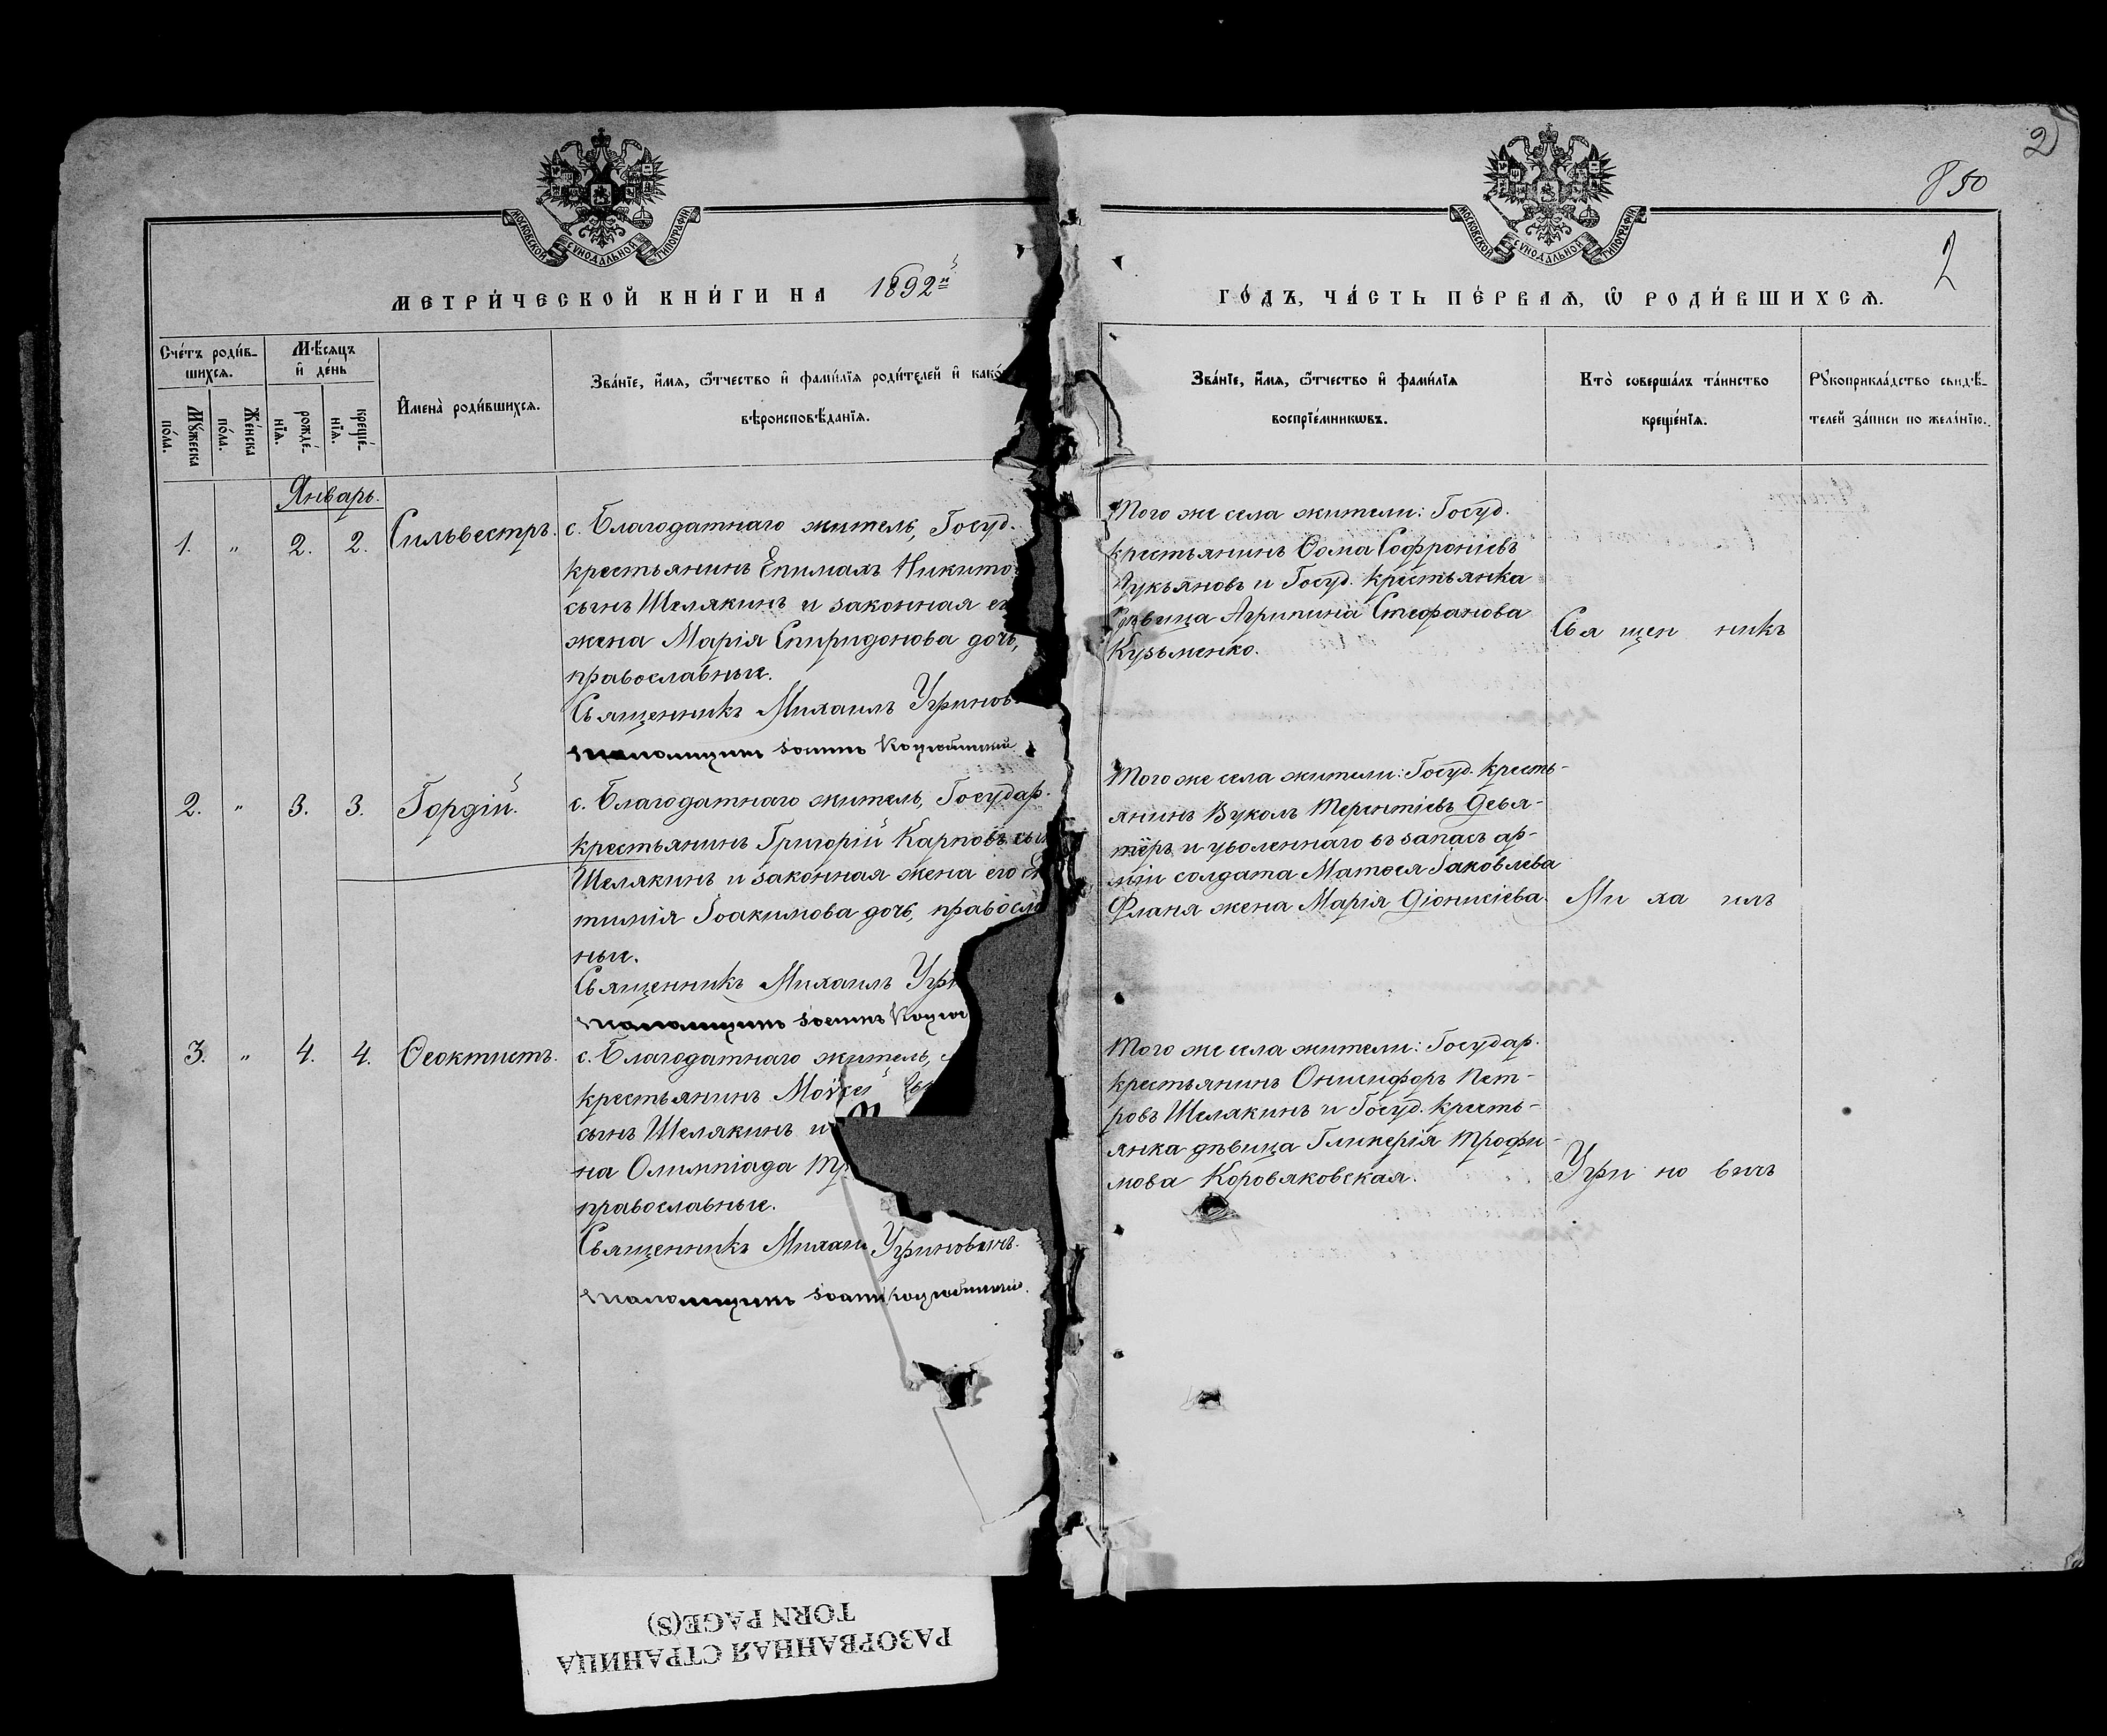 2
850
2
МОСКОВСКОЙ СѴНОДАЛЬНОЙ ТИПОГРАФІИ
МОСКОВСКОЙ СѴНОДАЛЬНОЙ ТИПОГРАФІИ
МЕТРИ́ЧЕСКОЙ КНИ́ГИ НА 1892й
ГО́ДЪ, ЧА́СТЬ ПЕ́РВАѦ, Ѽ РОДИ́ВШИХСѦ.
Сче́тъ роди́в-
шихсѧ.
Мѣ́сѧцъ
и҆ де́нь
Мꙋ́жеска
по́ла.
Же́нска
по́ла.
рожде́-
нїѧ.
креще́-
нїѧ.
И҆мена̀ роди́вшихсѧ.
Зва́нїе, и҆́мѧ, ѻ҆́тчество и҆ фами́лїѧ роди́телей и҆ како́
вѣроисповѣ́данїѧ.
Зва́нїе, и҆́мѧ, ѻ҆́тчество и҆ фами́лїѧ
воспрїе́мникѡвъ.
Кто̀ соверша́лъ та́инство
креще́нїѧ.
Рꙋкоприкла́дство свидѣ́-
телей за́писи по жела́нїю.
Январь.
1. " 2. 2. Сильвестръ.
с. Благодатнаго житель, Госуд.
крестьянинъ Епимахъ Никито
сынъ Шелякинъ и законная ег
жена Марія Спиридонова дочь,
православные.
Священникъ Михаилъ Угринов
Псаломщикъ Іоаннъ Коцюбинскій
Того же села жители: Госуд.
крестьянинъ Ѳома Софроніевъ
Лукьяновъ и Госуд. крестьянка
дѣвица Агрипина Стефанова
Кузьменко.
Свя щен никъ
2. " 3. 3. Гордій.
с. Благодатнаго житель, Государ.
крестьянинъ Григорій Карповъ сын
Шелякинъ и законная жена его Ев
тимія Іоакимова дочь, правосла
ные.
Священникъ Михаилъ Угр
Псаломщикъ Іоаннъ Коцюб
Того же села жители: Госуд. кресть-
янинъ Вуколъ Терентіевъ Девя-
тёръ и уволеннаго въ запасъ ар-
міи солдата Матѳея Іаковлева
Фланя жена Марія Діонисіева.
Ми ха илъ
3. " 4. 4. Ѳеоктистъ.
с. Благодатнаго житель,
крестьянинъ Моѵсей
сынъ Шелякинъ и
на Олимпіада Тр
православные.
Священникъ Михаи Угриновичъ.
Псаломщикъ Іоанн Коцюбинскій.
Того же села жители: Государ.
крестьянинъ Онисифоръ Пет-
ровъ Шелякинъ и Госуд. кресть-
янка дѣвица Гликерія Трофи-
мова Коровяковская.
Угри но вичъ
РАЗОРВАННАЯ СТРАНИЦА
TORN PAGE(S)